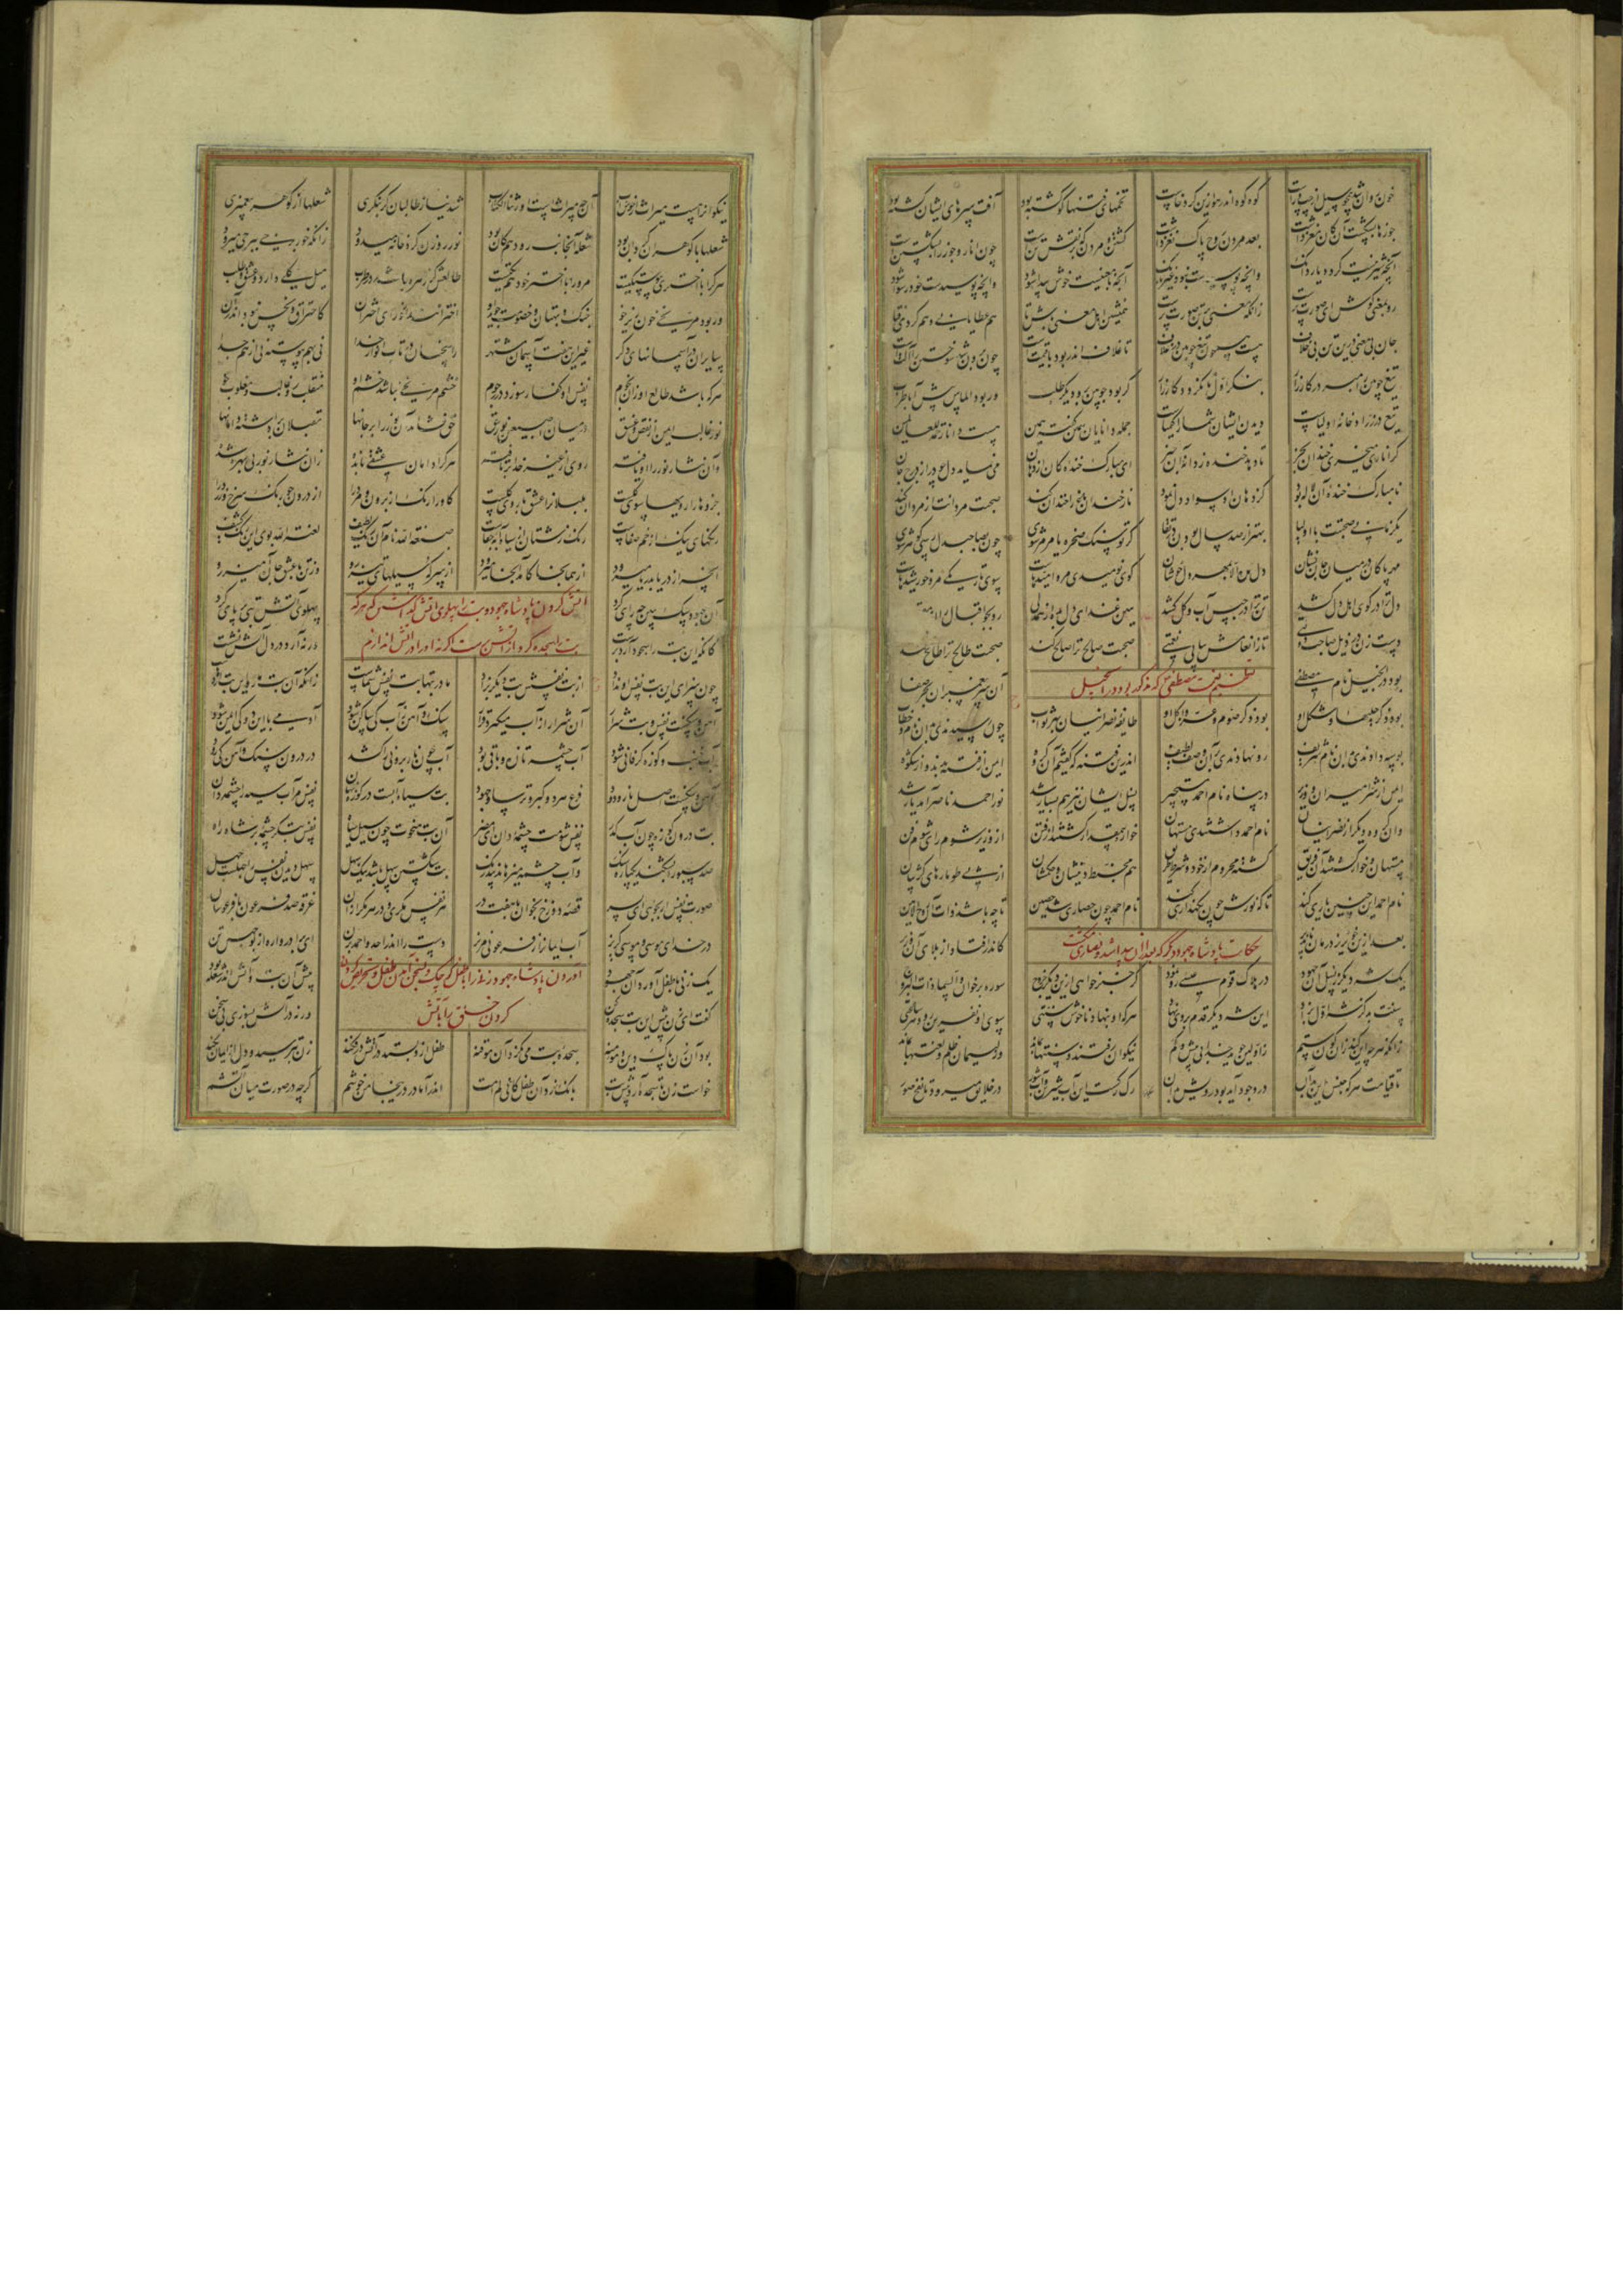 خون روان شد همچو سیل از چپ و راست کوه کوه اندر هوا زین گرد خاست تخمهای فتنها کو کشته بود آفت سرهای ایشان گشته بود
جوزها بشکست آن کان مغز داشت بعد مردن روح پاک نغز داشت کشتن و مردن که بر نقش تن است چون انار و جوز را بشکستن است
آنچه شیرینست کردد یار دانک وانچه پوسیدست نبود غیر بانک آنچه با معنیست خوش پیدا شود وانچه پوسیدست خود رسوا شود
رو بمعنی کوش ای صورت پرست زانکه معنی بر تن صورت پرست همنشین اهل معنی باش تا هم عطا یابی و هم کردی فتا
جان بی معنی درین تن بی خلاف هست همچون تیغ چوبین در غلاف تا غلاف اندر بود با قیمت است چون برون شد سوختن را آلت است
تیغ چوبین را مبر در کارزار بنکر اول تا نکردد کار زار کر بود چوبین برو دیکر طلب ور بود الماس پیش آ با طرب
تیغ در زرادخانه اولیاست دیدن ایشان شما را کیمیاست جمله دانایان همین گفته همین هست دانا رحمة للعالمین
کر اناری میخری خندان بخر تا دهد خنده ز دانه او خبر ای مبارک خنده کان از دهان می نماید دل چو در از درج جان
نامبارک خنده آن لاله بود کز دهان او سواد دل نمود نار خندان باغ را خندان کند صحبت مردانت از مردان کند
یکزمانی صحبت با اولیا بهتر از صد سال بودن در تقا کر تو سنک صخره یا مرمر شوی چون بصاحبدل رسی کوهر شوی
مهر پاکان در میان جان نشان دل مده الا بمهر دلخوشان کوی نومیدی مرو امیدهاست سوی تاریکی مرو خورشیدهاست
دل ترا در کوی اهل دل کشد تن ترا در حبس آب و کل کشد هین غذای دل بده از همدلی رو بجو اقبال را از
دست زن در ذیل صاحب دولتی تا ز افضالش بیابی رفعتی صحبت صالح ترا صالح کند صحبت طالح ترا طالح کند
تعظیم نعت مصطفی که مذکور بود در انجیل
بود در انجیل نام مصطفی آن سر پیغمبران بحر صفا
بود ذکر حلیها و شکل او بود ذکر صوم و غزو و اکل او طایفه نصرانیان بهر ثواب چون رسیدندی بدان نام و خطاب
بوسه دادندی بدان نام شریف رو نهادندی بدان وصف لطیف اندرین فتنه که گفتیم آن گروه ایمن از فتنه بدند و از شکوه
ایمن از شر امیران و وزیر در پناه نام احمد مستجیر نسل ایشان نیز هم بسیار شد نور احمد ناصر آمد یار شد
وان گروه دیکر از نصرانیان نام احمد داشتندی مستهان خوار و بیمقدار کشتند از فتن از وزیر شوم رای شوم فن
مستهان و خوار کشتند آن فریق کشته محروم از خود و شرط طریق هم مخبط دینشان و حکمشان از پی طومارهای کژ بیان
نام احمد این چنین یاری کند تا که نورش چون نکهداری کند نام احمد چون حصاری شد حصین تا چه باشد ذات آن روح الامین
حکایت پادشاه جهود دیکر که
بعد ازین خونریز درمان ناپذیر کاندر افتاد از بلای آن وزیر
یک شه دیکر ز نسل آن جهود در هلاک قوم عیسی رو نمود کر خبر خواهی ازین دیکر خروج سوره برخوان والسما ذات البروج
سنت بد کز شه اول بزاد این شه دیکر قدم بر وی نهاد هر که او بنهاد ناخوش سنتی سوی او نفرین رود هر ساعتی
زانکه هر چه این کند زان کون ستم ز اولین جوید خدا بی بیش و کم نیکوان رفتند و سنتها بماند وز لئیمان ظلم و لعنتها بماند
تا قیامت هر که جنس این بدان در وجود آید بود رویش بدان رک رکست این آب شیرین و آب شور در خلایق میرود تا نفخ صور
نیکوانرا هست میراث از خوشاب آن چه میراث است اورثنا الکتاب شد نیاز طالبان ار بنکری شعلها از کوهر پیغمبری
شعلها با کوهران کردان بود شعله آنجانب رود هم کان بود نور روزن کرد خانه میدود زانکه خور برجی ببرجی میرود
هر کرا با اختری پیوستکیست مر ورا با اختر خود هم تکیست طالعش کر زهره باشد در طرب میل کلی دارد و عشق و طلب
ور بود مریخی خون ریز خو جنک و بهتان و خصومت جوید او اخترانند از ورای اختران کاحتراق و نحس نبود اندر آن
سایران در آسمانهای دکر غیر این هفت آسمان مشتهر راسخان در تاب انوار خدا نی بهم پیوسته نی از هم جدا
هر که باشد طالع او زان نجوم نفس او کفار سوزد در رجوم خشم مریخی نباشد خشم او منقلب رو غالب و مغلوب خو
نور غالب ایمن از نقص و غسق در میان اصبعین نور حق حق فشاند آن نور را بر جانها مقبلان برداشته دامانها
وان نثار نور را او یافته روی از غیر خدا بر تافته هر کرا دامان عشقی نابده زان نثار نور بی بهره شده
جزوها را رویها سوی کلست بلبلانرا عشق با روی کلست کاو را رنک از برون و مرد را از درون جو رنک سرخ و زرد را
رنکهای نیک از خم صفاست رنک زشتان از سیاه آبه جفاست صبغة الله نام آن رنک لطیف لعنة الله بوی این رنک کثیف
آنچه از دریا بدریا میرود از همانجا کامد آنجا میرود از سر که سیلهای تیز رو وز تن ما جان عشق آمیز رو
آتش کردن پادشاه جهود و بت را پهلوی آتش
بت را سجده کرد از آتش رست اکر نه او را در آتش اندازم
آن جهود سک ببین چه رای کرد پهلوی آتش بتی بر پای کرد
کانکه این بت را سجود آرد برست ور نه آرد در دل آتش نشست
چون سزای این بت نفس او نداد از بت نفسش بت دیکر بزاد مادر بتها بت نفس شماست زانکه آن بت مار و این بت اژدهاست
آهن و سنکست نفس و بت شرار آن شرار از آب میکیرد قرار سنک و آهن ز آب کی ساکن شود آدمی با این دو کی ایمن شود
آب خم و کوزه کر فانی شود آب چشمه تازه و باقی بود
بت سیاه آبست در کوزه نهان نفس مر آب سیه را چشمه دان
بت درون کوزه چون آب کدر نفس شومت چشمه دان ای مصر آن بت منحوت چون سیل سیاه نفس بتکر چشمه بر شاه راه
صد سبو را بشکند یکپاره سنک وآب چشمه میزهاند بیدرنک بت شکستن سهل باشد نیک سهل سهل دیدن نفس را جهلست جهل
صورت نفس ار بجویی ای پسر قصه دوزخ بخوان با هفت در هر نفس مکری و در هر مکر از آن غرقه صد فرعون با فرعونیان
در خدای موسی و موسی کریز آب ایمانرا ز فرعونی مریز دست را اندر احد و احمد بزن ای برادر واره از بوجهل تن
آوردن پادشاه جهود زنی را با طفل کوچک و بسخن آمدن طفل و تحریض کردن
کردن خلق را بآتش
یک زنی با طفل آورد آن جهود پیش آن بت و آتش اندر شعله بود
کفت ای زن پیش این بت سجده کن ور نه در آتش بسوزی بی سخن
بود آن زن پاک دین و مؤمنه سجده بت می نکرد آن موقنه طفل ازو بستد در آتش در فکند زن بترسید و دل از ایمان بکند
خواست زن تا سجده آرد پیش بت بانک زد آن طفل کانی لم امت اندر آ مادر که من اینجا خوشم کرچه در صورت میان آتشم